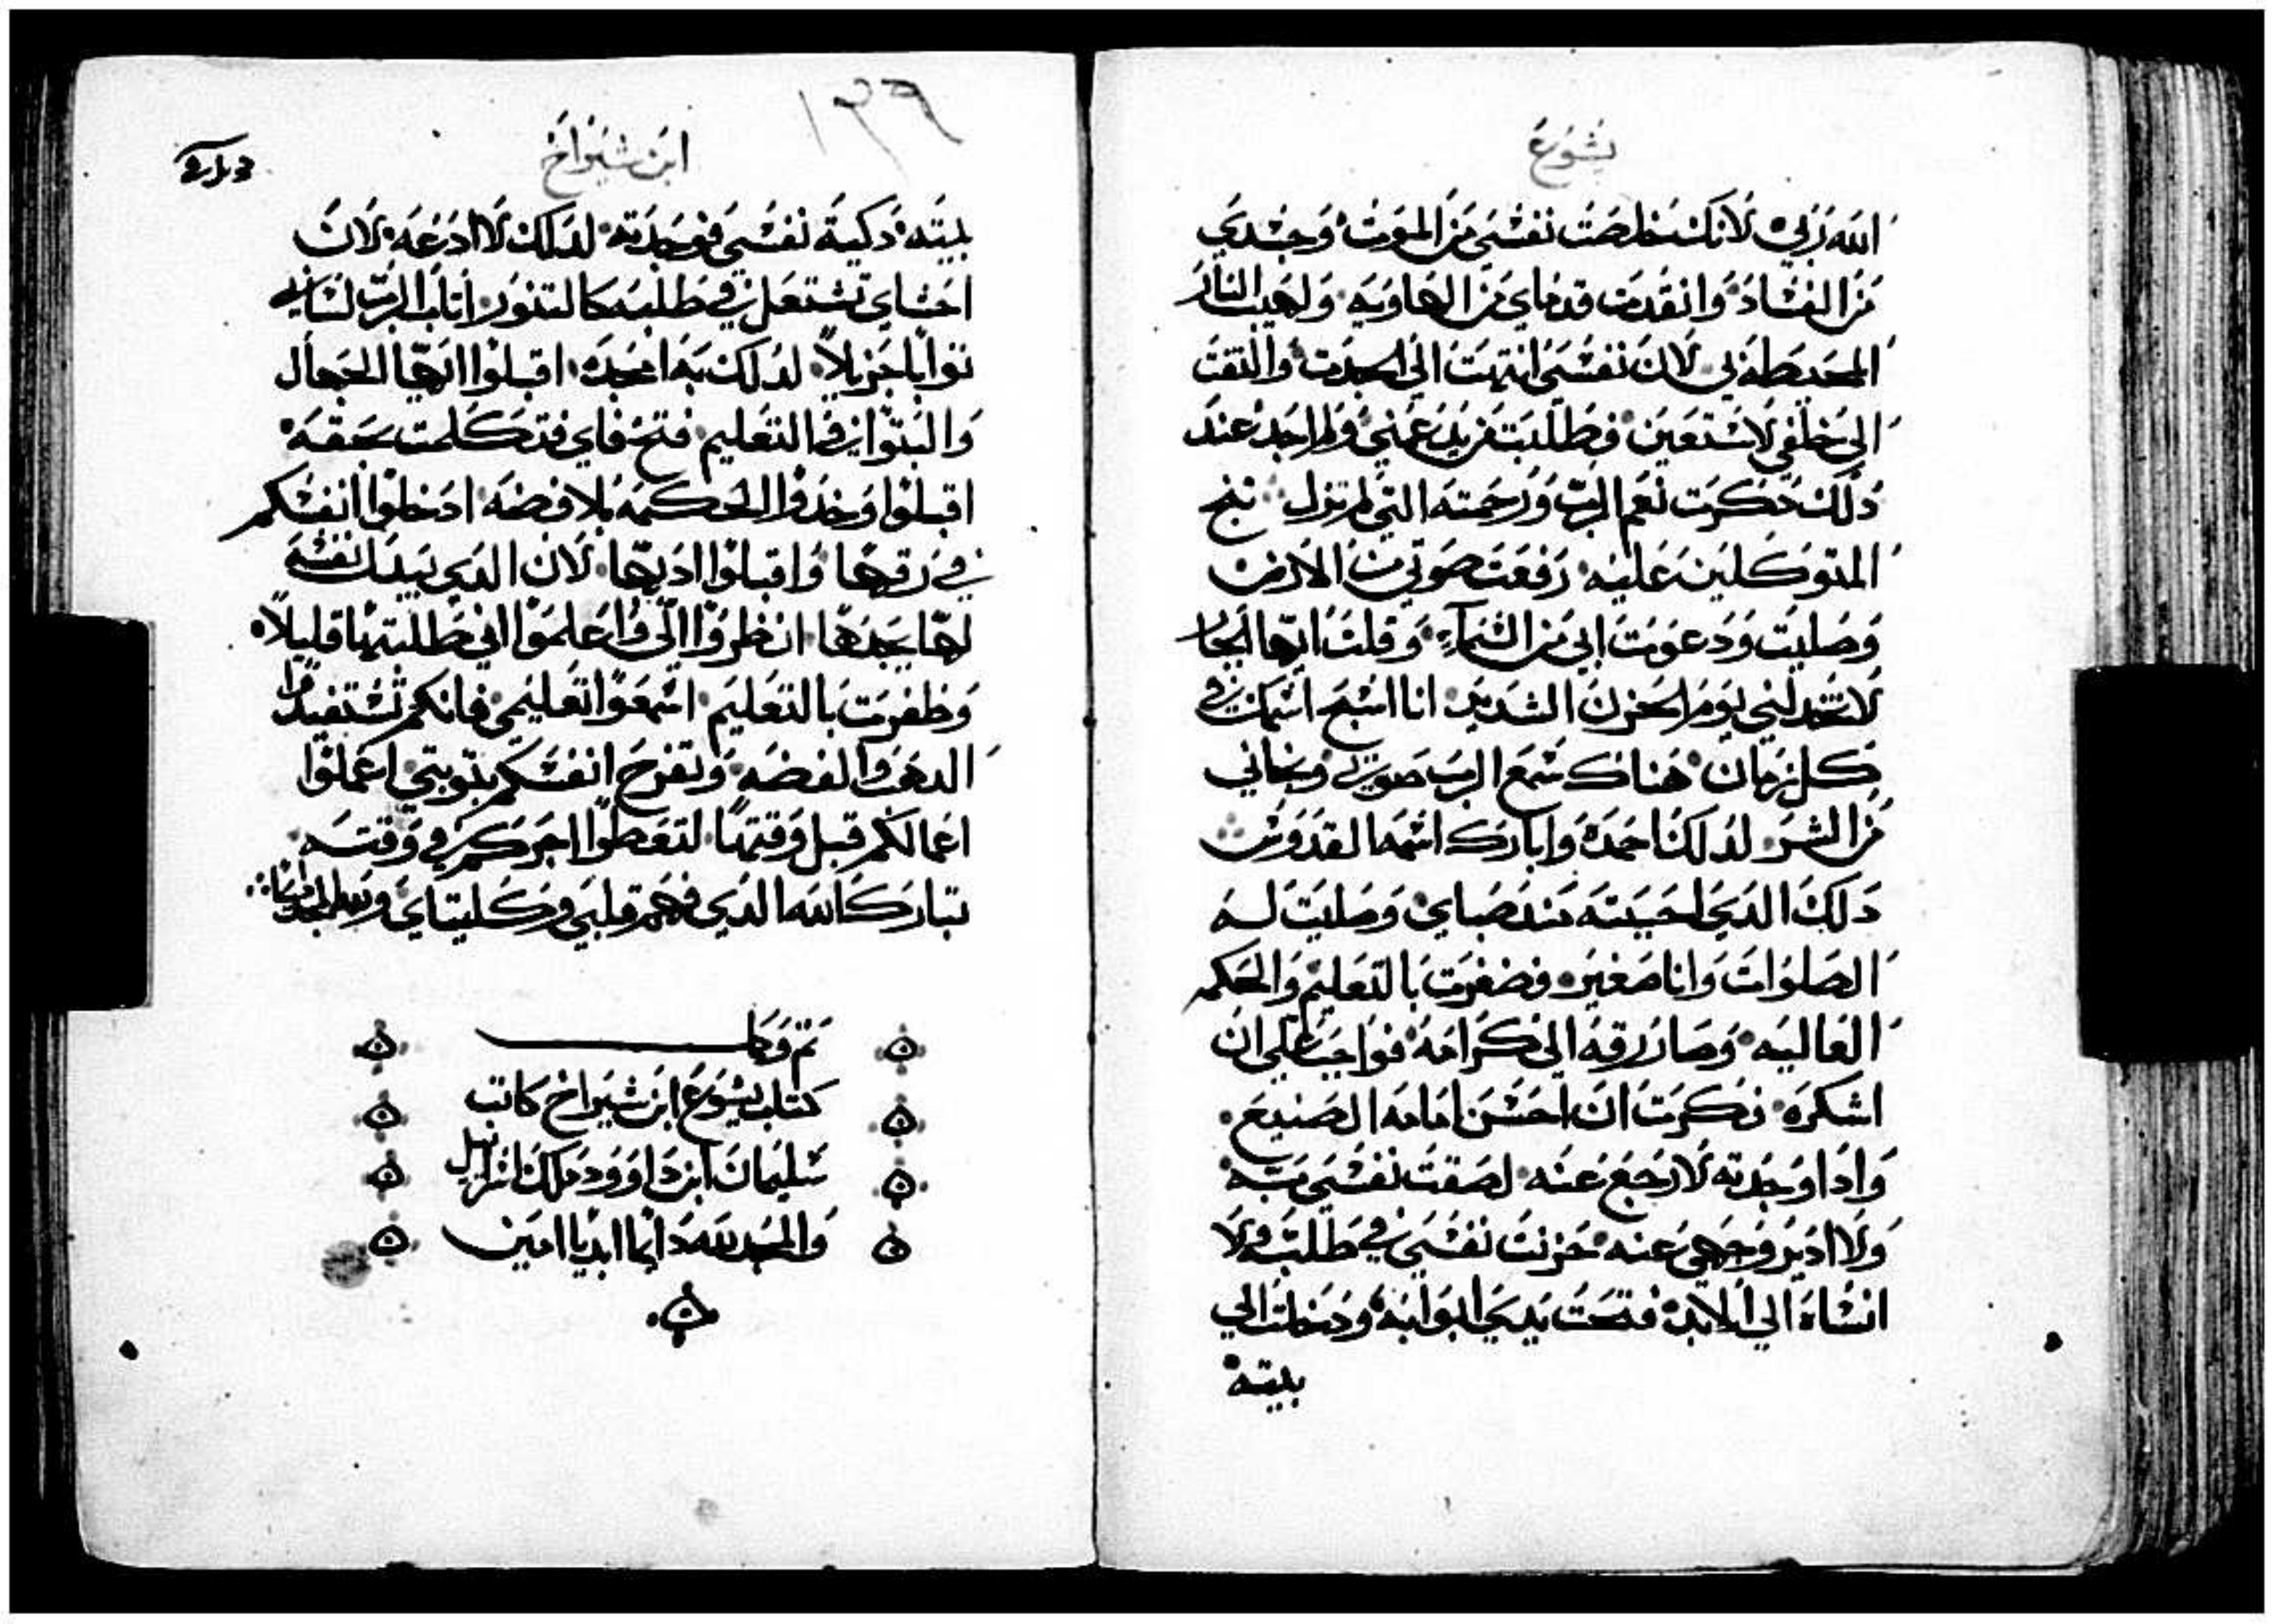 يشوع
الله ربي لانك خلصت نفسي من الموت وجسدي
من الفساد وانقدت قدماي من الهاويه ولهيب النار
المحيطه بي لان نفسي انتهت الي الموت والتفت
الي خلفي لاستعين فطلبت من يعني ولم اجد عند
دلك دكرت نعم الرب ورحمته التي لم تزل تنج
المتوكلين عليه رفعت صوتي من الارض
وصليت ودعوت ابي من السماء وقلت ايها
لا تخدلني يوم الحزن الشديد انا اسبح اسمك في
كل زمان هناك سمع الرب صوتي ونجاني
من الشر لدلك احمده وابارك اسمه القدوس
دلك الدي احببته مند صباي وصليت له
الصلوات وانا صغير فضفرت بالتعليم والحكمه
العاليه وصار رقه الي كرامه فواجب علي ان
اشكره فكرت ان احسن امامه الصنيع
وادا وجدته لا ارجع عنه لصقت نفسي به
ولا ادير وجهي عنه حزنت نفسي في طلبه ولا
انساه الي الابد فتحت يدي ابوابه ودخلت الي
بيته
١٣٩
ابن شيراخ
بيته دكية نفسي فوجدته لدلك لا ادعه لان
احشاي تشتعل في طلبه كالتنور اتاب الرب لساني
توابا جزيلا لدلك به امجده اقبلوا ايها الجهال
والبتوا في التعليم فتح فاي فتكلمت بحقه
اقبلوا وخدوا الحكمه بلا فضه ادخلوا انفسكم
في رقها واقبلوا ادبها لان الدي يبدل نفسه
لها يجدها انظروا الي واعلموا اني طلبتها قليلا
وظفرت بالتعليم اسمعوا تعليمي فانكم تستفيدوا
الدهب والفضه وتفرح انفسكم بتوبتي اعملوا
اعمالكم قبل وقتها لتعطوا اجركم في وقته
تبارك الله الدي فهم قلبي وكليتاي
تم وكمل
كتاب يشوع ابن شيراخ كاتب
سليمان ابن داوود ملك اسراييل
والمجد لله دايما ابديا امين